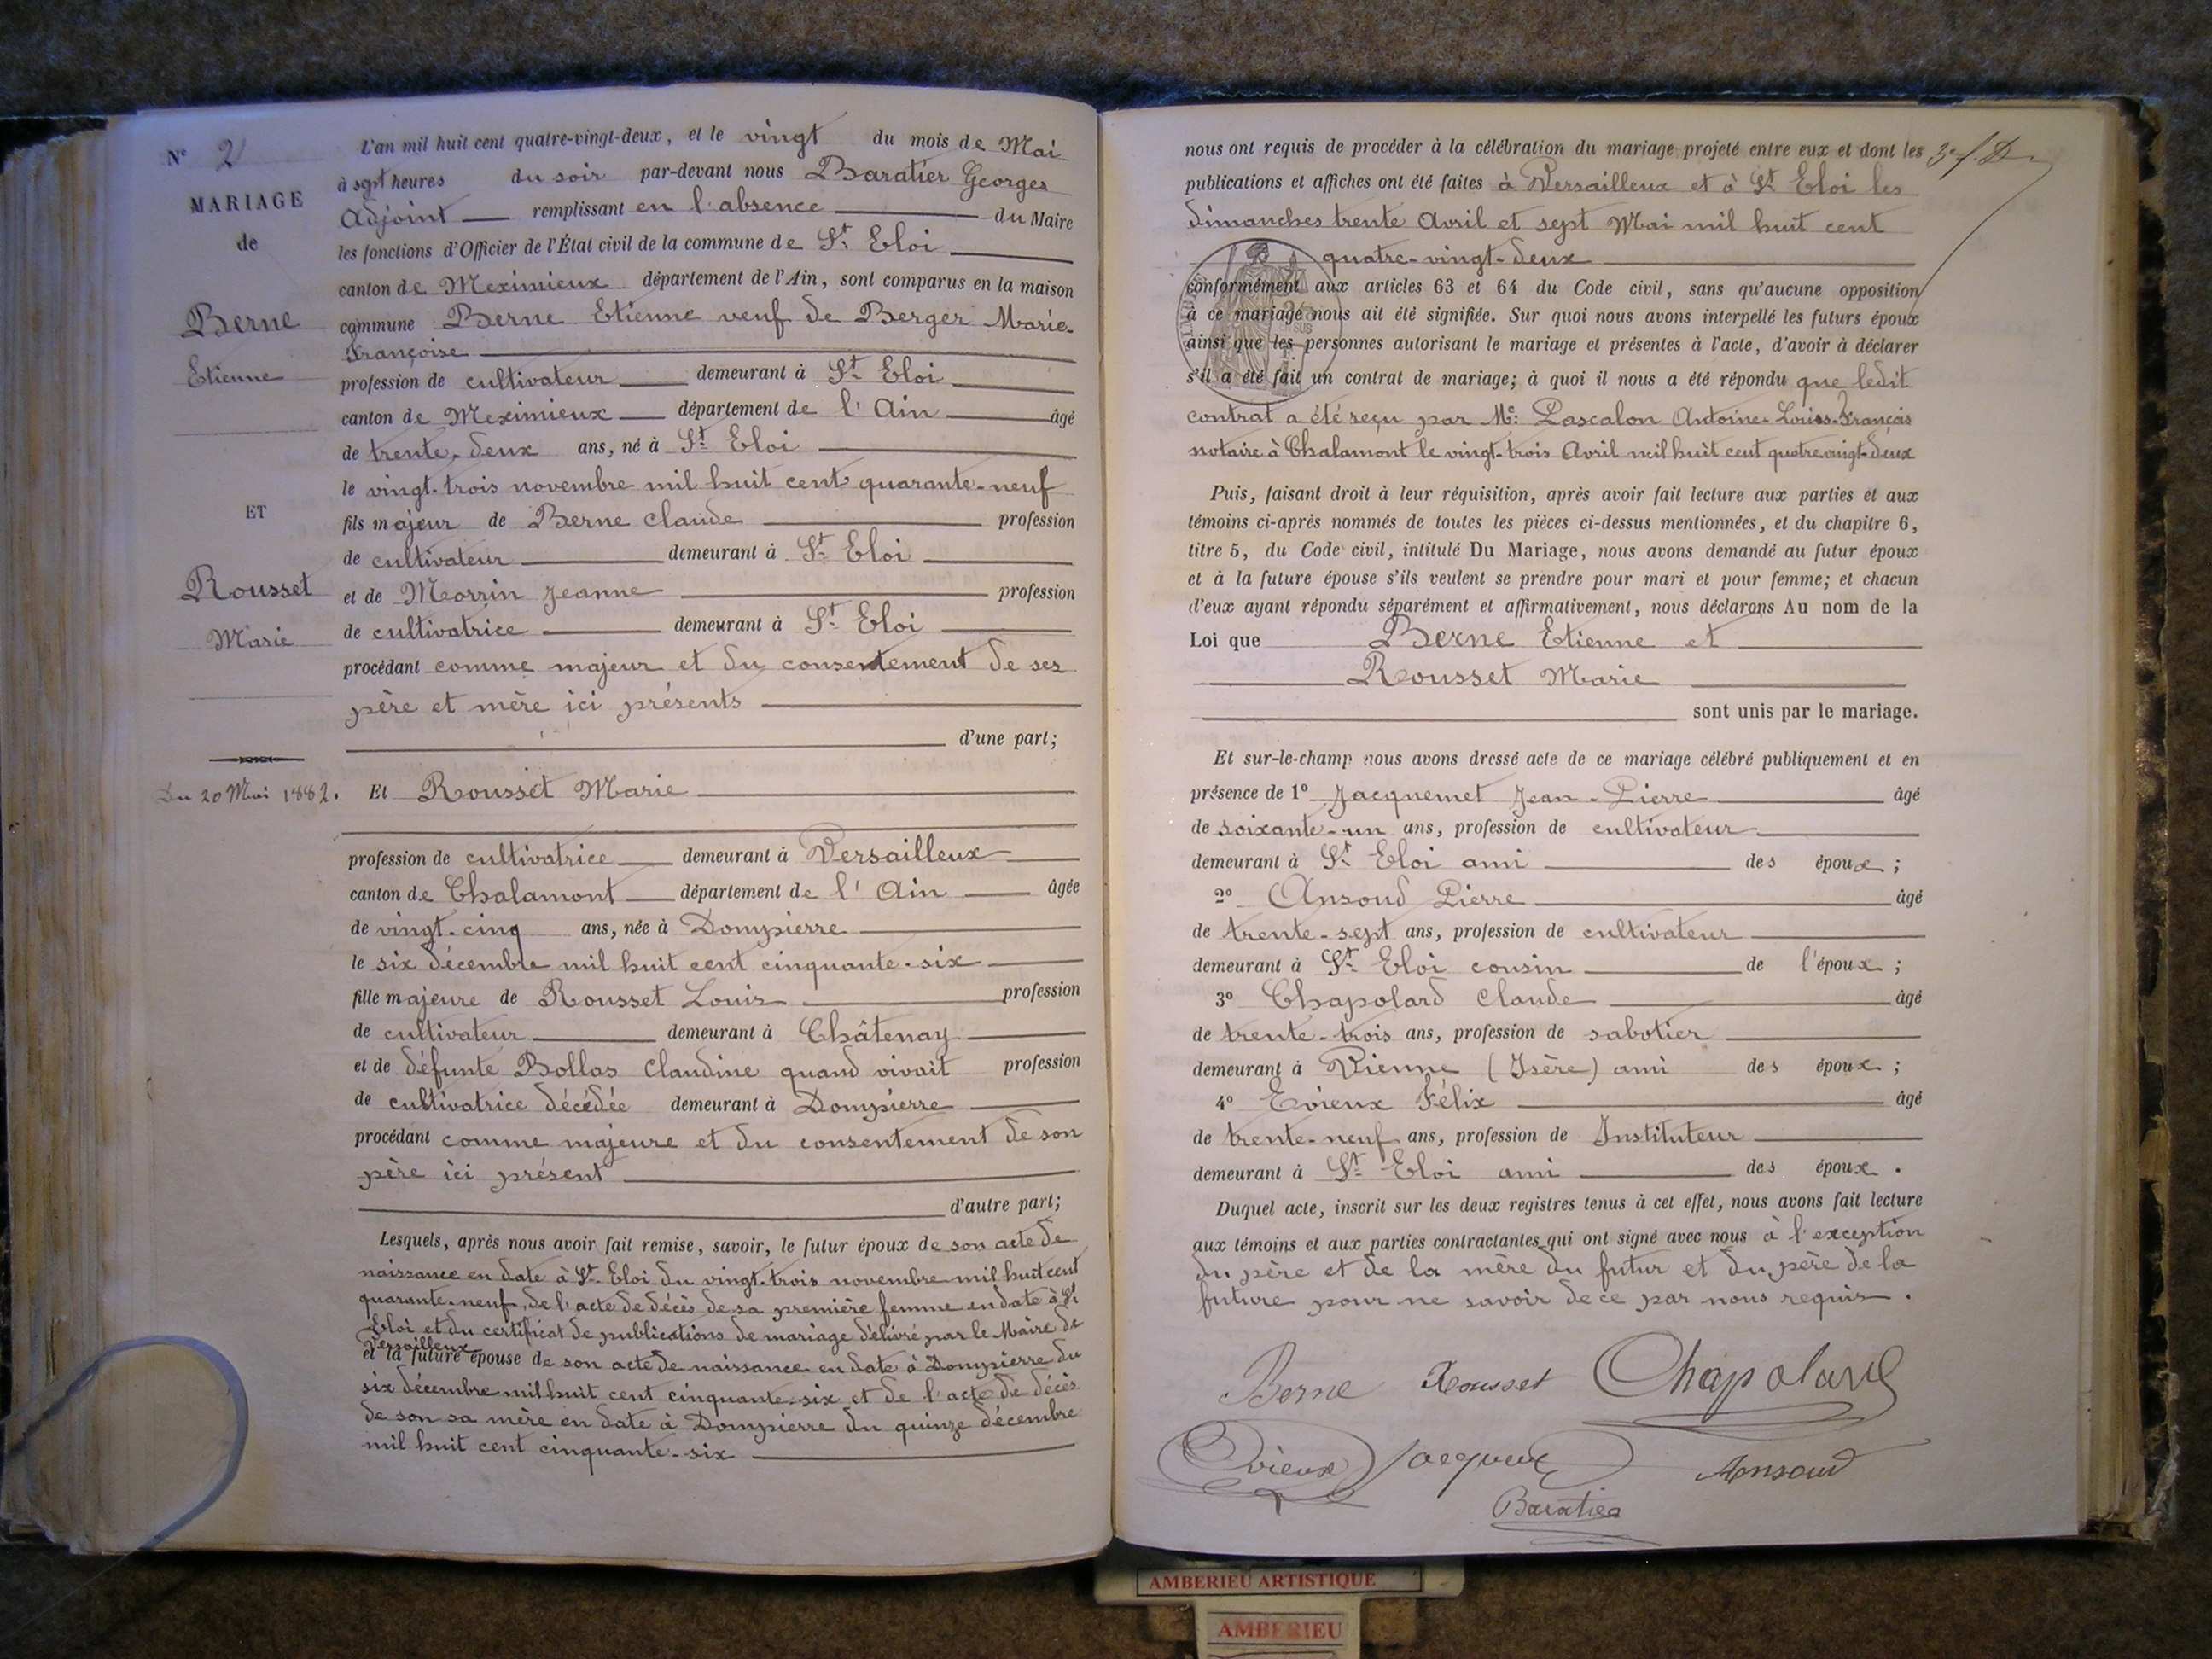 Nº 2
MARIAGE
de
Berne
Etienne
ET
Rousset
Marie
Du 20 Mai 1882.
L'an mil huit cent quatre-vingt-deux, et le vingt du mois de Mai
à sept heures du soir par-devant nous Baratier Georges
Adjoint remplissant en l'absence du Maire
les fonctions d'Officier de l'État civil de la commune de St. Eloi
canton de Meximieux département de l'Ain, sont comparus en la maison
commune Berne Etienne veuf de Berger Marie-
Françoise
profession de cultivateur demeurant à St. Eloi
canton de Meximieux département de l'Ain âgé
de trente-deux ans, né à St. Eloi
le vingt-trois novembre mil huit cent quarante-neuf
fils majeur de Berne Claude profession
de cultivateur demeurant à St. Eloi
et de Morrin Jeanne profession
de cultivatrice demeurant à St. Eloi
procédant comme majeur et du consentement de ses
père et mère ici présents
d'une part;
Et Rousset Marie
profession de cultivatrice demeurant à Versailleux
canton de Chalamont département de l'Ain âgée
de vingt-cinq ans, née à Dompierre
le six décembre mil huit cent cinquante-six
fille majeure de Rousset Louis profession
de cultivateur demeurant à Châtenay
et de défunte Bollas Claudine quand vivait profession
de cultivatrice décédée demeurant à Dompierre
procédant comme majeure et du consentement de son
père ici présent
d'autre part;
Lesquels, après nous avoir fait remise, savoir, le futur époux de son acte de
naissance en date à St. Eloi du vingt-trois novembre mil huit cent
quarante-neuf, de l'acte de décès de sa première femme en date à St
Eloi et du certificat de publications de mariage délivré par le Maire de
Versailleux
et la future épouse de son acte de naissance en date à Dompierre du
six décembre mil huit cent cinquante-six et de l'acte de décès
de son sa mère en date à Dompierre du quinze décembre
mil huit cent cinquante-six
nous ont requis de procéder à la célébration du mariage projeté entre eux et dont les
publications et affiches ont été faites à Versailleux et à St. Eloi les
dimanches trente Avril et sept Mai mil huit cent
quatre-vingt-deux
conformément aux articles 63 et 64 du Code civil, sans qu'aucune opposition
à ce mariage nous ait été signifiée. Sur quoi nous avons interpellé les futurs époux
ainsi que les personnes autorisant le mariage et présentes à l'acte, d'avoir à déclarer
s'il a été fait un contrat de mariage; à quoi il nous a été répondu que ledit
contrat a été reçu par Me: Pascalon Antoine-Louis-François
notaire à Chalamont le vingt-trois Avril mil huit cent quatre vingt-deux
Puis, faisant droit à leur réquisition, après avoir fait lecture aux parties et aux
témoins ci-après nommés de toutes les pièces ci-dessus mentionnées, et du chapitre 6,
titre 5, du Code civil, intitulé Du Mariage, nous avons demandé au futur époux
et à la future épouse s'ils veulent se prendre pour mari et pour femme; et chacun
d'eux ayant répondu séparément et affirmativement, nous déclarons Au nom de la
Loi que Berne Etienne et
Rousset Marie
sont unis par le mariage.
Et sur-le-champ nous avons dressé acte de ce mariage célébré publiquement et en
présence de 1º Jacquemet Jean-Pierre âgé
de soixante-un ans, profession de cultivateur
demeurant à St. Eloi ami des époux;
2º Ansoud Pierre âgé
de trente-sept ans, profession de cultivateur
demeurant à St. Eloi cousin de l'époux;
3º Chapolard Claude âgé
de trente-trois ans, profession de sabotier
demeurant à Vienne (Isère) ami des époux;
4º Evieux Félix âgé
de trente-neuf ans, profession de Instituteur
demeurant à St. Eloi ami des époux.
Duquel acte, inscrit sur les deux registres tenus à cet effet, nous avons fait lecture
aux témoins et aux parties contractantes qui ont signé avec nous à l'exception
du père et de la mère du futur et du père de la
future pour ne savoir de ce par nous requis.
Berne Rousset Chapolard
Evieux Jacquemet Ansoud
Baratier
AMBERIEU ARTISTIQUE
AMBERIEU